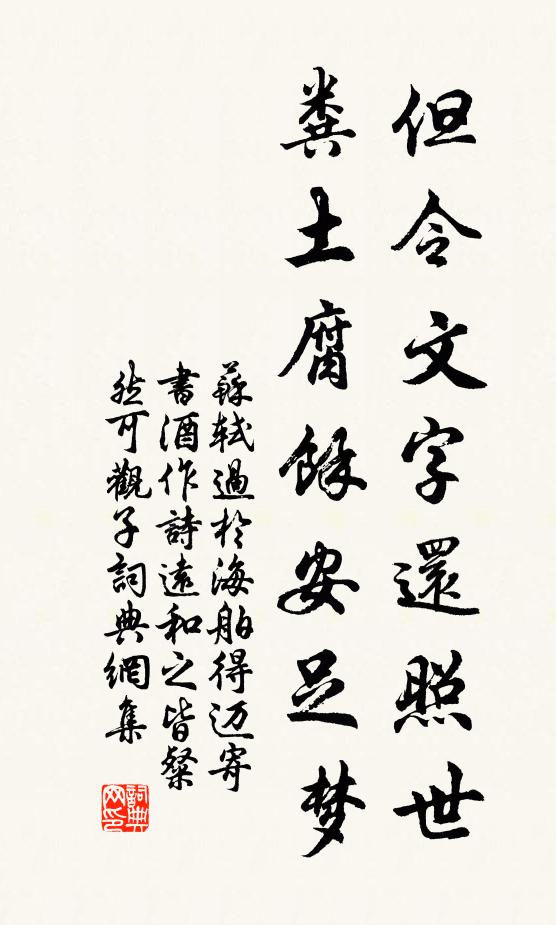 但令文字還照世
糞土腐餘安足梦
蘇軾過於海舶得迈寄
書酒作詩遠和之皆粲
然可觀子詞典網集
詞典
网